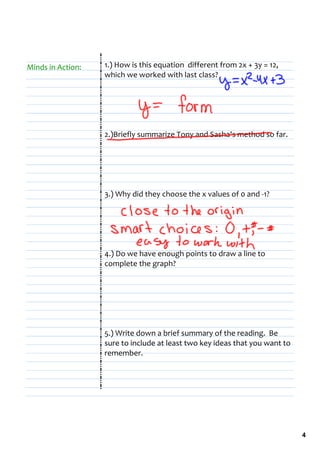 Minds in Action:
1.) How is this equation different from 2x + 3y = 12,
which we worked with last class?
y=x²-4x+3
y= form
2.)Briefly summarize Tony and Sasha's method so far.
3.) Why did they choose the x values of 0 and -1?
close to the origin
smart choices: 0, +#, -#
easy to work with
4.) Do we have enough points to draw a line to
complete the graph?
5.) Write down a brief summary of the reading. Be
sure to include at least two key ideas that you want to
remember.
4